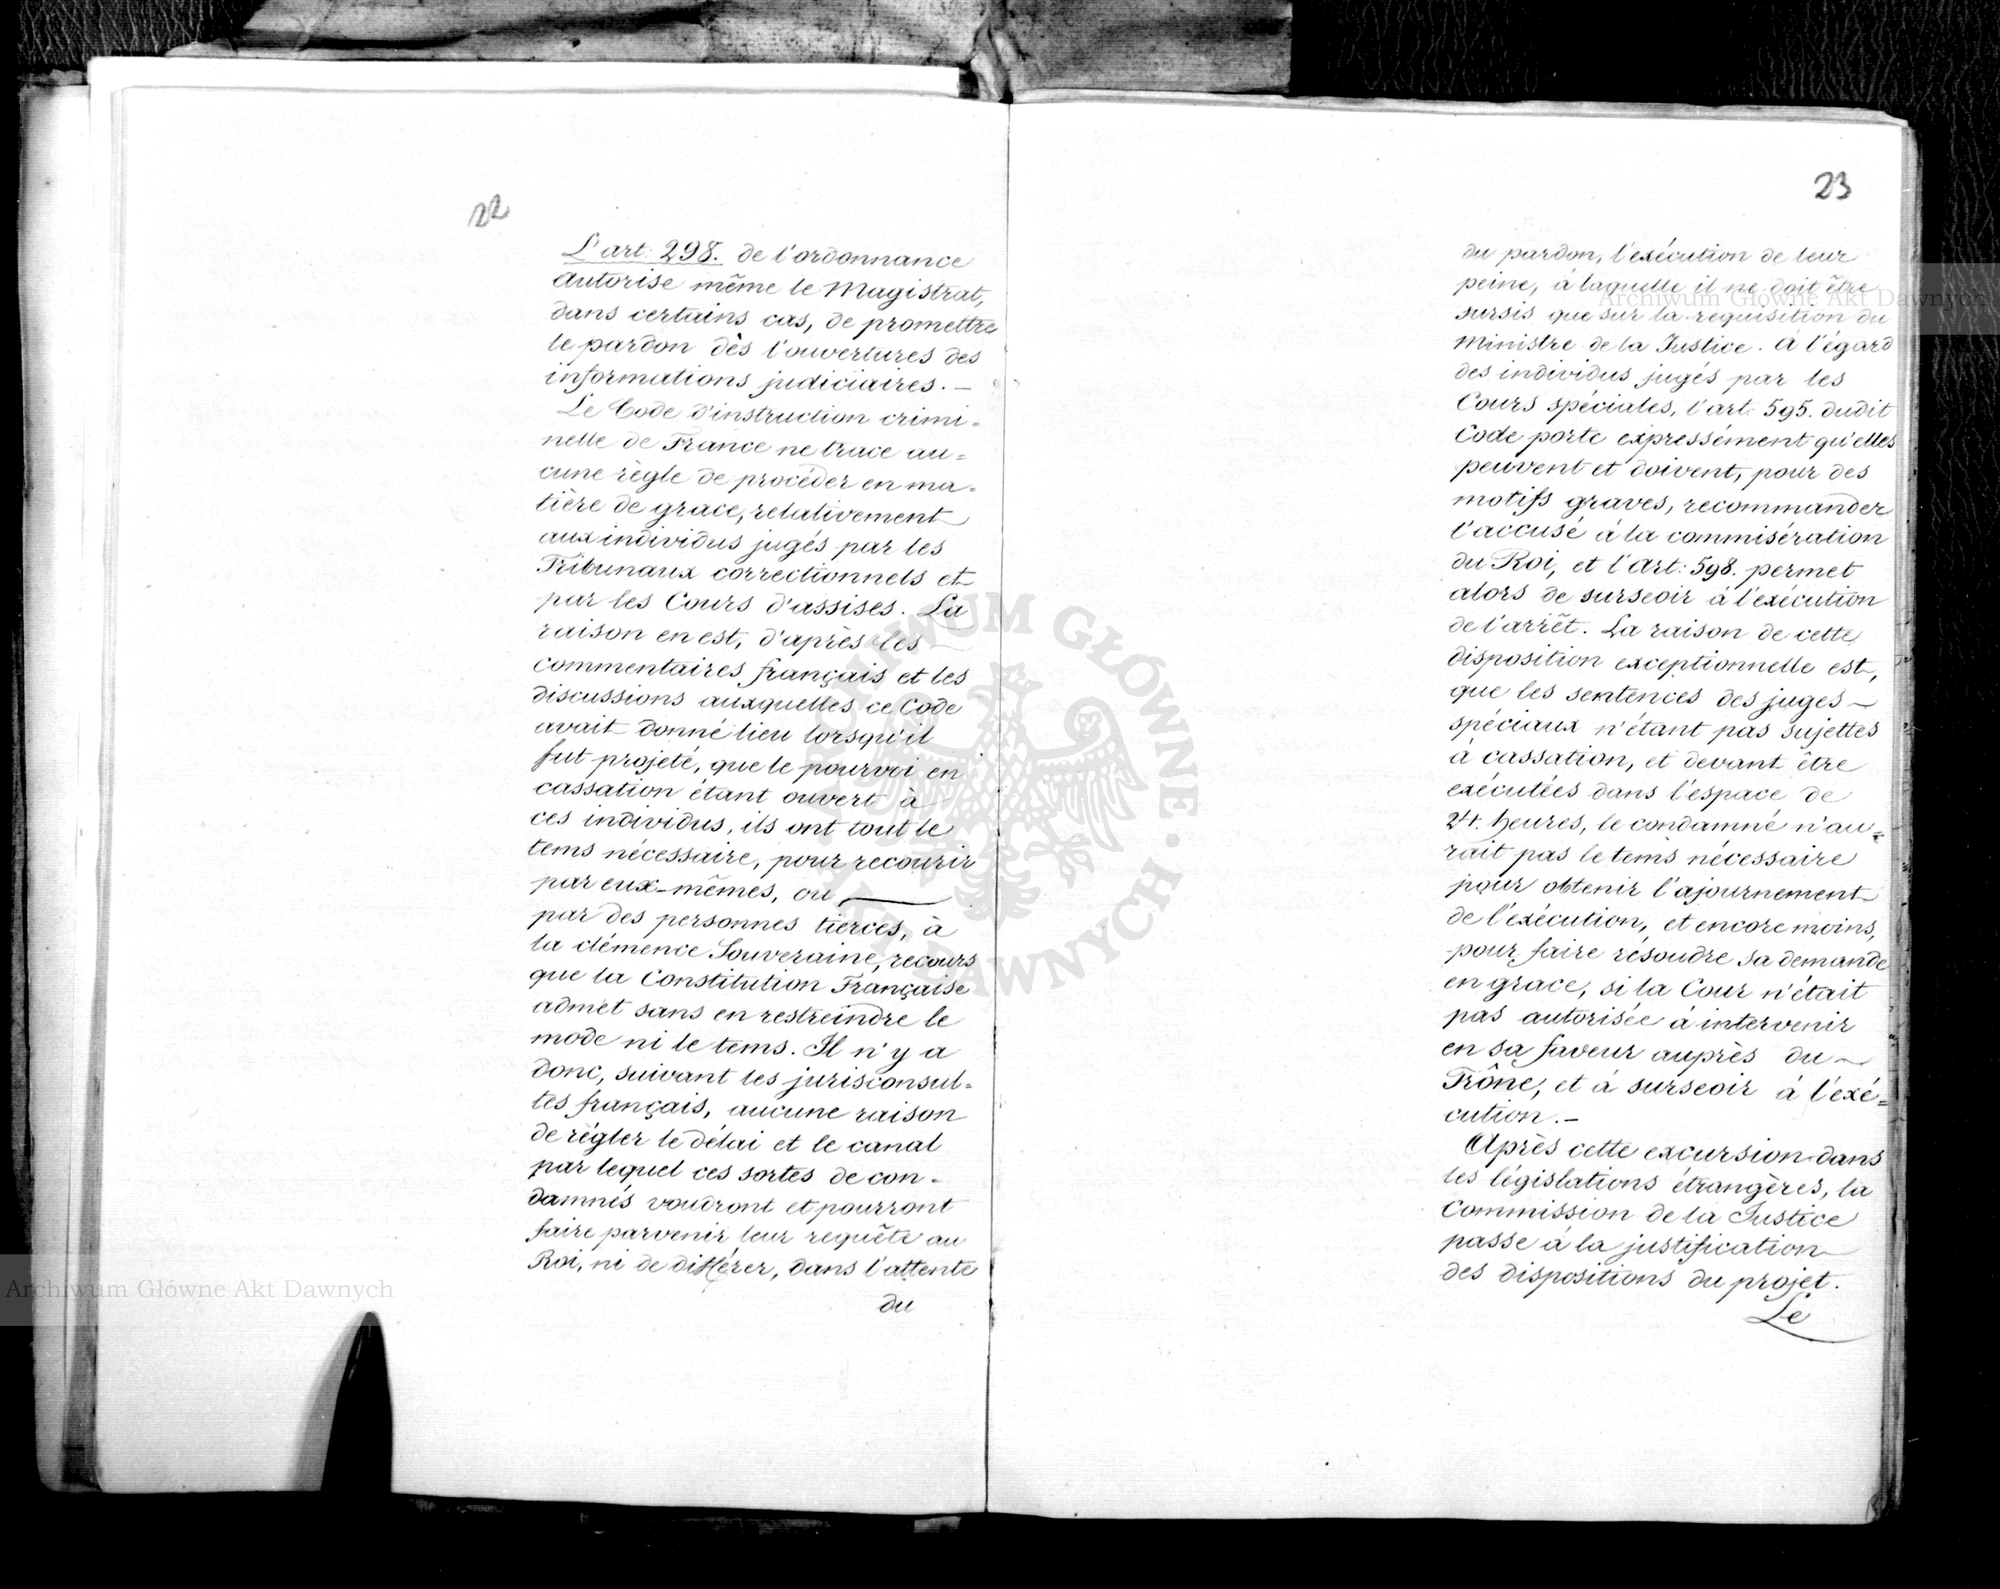 22
L'art: 298. de l'ordonnance
autorise même le Magistrat,
dans certains cas, de promettre
le pardon dès l'ouvertures des
informations judiciaires. —
Le Code d'instruction crimi=
nelle de France ne trace au=
cune règle de procéder en ma=
tière de grace, relativement
aux individus jugés par les
Tribunaux correctionnels et
par les Cours d'assises. La
raison en est, d'après les
commentaires français et les
discussions auxquelles ce Code
avait donné lieu lorsqu'il
fut projeté, que le pourvoi en
cassation étant ouvert à
ces individus, ils ont tout le
tems nécessaire, pour recourir
par eux-mêmes, ou
par des personnes tierces, à
la clémence Souveraine, recours
que la Constitution Française
admet sans en restreindre le
mode ni le tems. Il n'y a
donc, suivant les jurisconsul=
tes français, aucune raison
de régler le délai et le canal
par lequel ces sortes de con=
damnés voudront et pourront
faire parvenir leur requête au
Roi, ni de différer, dans l'attente
du
23
du pardon, l'exécution de leur
peine, à laquelle il ne doit être
sursis que sur la requisition du
Ministre de la Justice. À l'égard
des individus jugés par les
Cours spéciales, l'art: 595. dudit
Code porte expressément qu'elles
peuvent et doivent, pour des
motifs graves, recommander
l'accusé à la commisération
du Roi, et l'art: 598. permet
alors de surseoir à l'exécution
de l'arrêt. La raison de cette
disposition exceptionnelle est,
que les sentences des juges —
spéciaux n'étant pas sujettes
à cassation, et devant être
exécutées dans l'espace de
24. heures, le condamné n'au=
rait pas le tems nécessaire
pour obtenir l'ajournement
de l'exécution, et encore moins,
pour faire résoudre sa demande
en grace, si la Cour n'était
pas autorisée à intervenir
en sa faveur auprès du —
Trône, et à surseoir à l'exé=
cution. —
Après cette excursion dans
les législations étrangères, la
Commission de la Justice
passe à la justification
des dispositions du projet.
Le
Archiwum Główne Akt Dawnych
Archiwum Główne Akt Dawnych